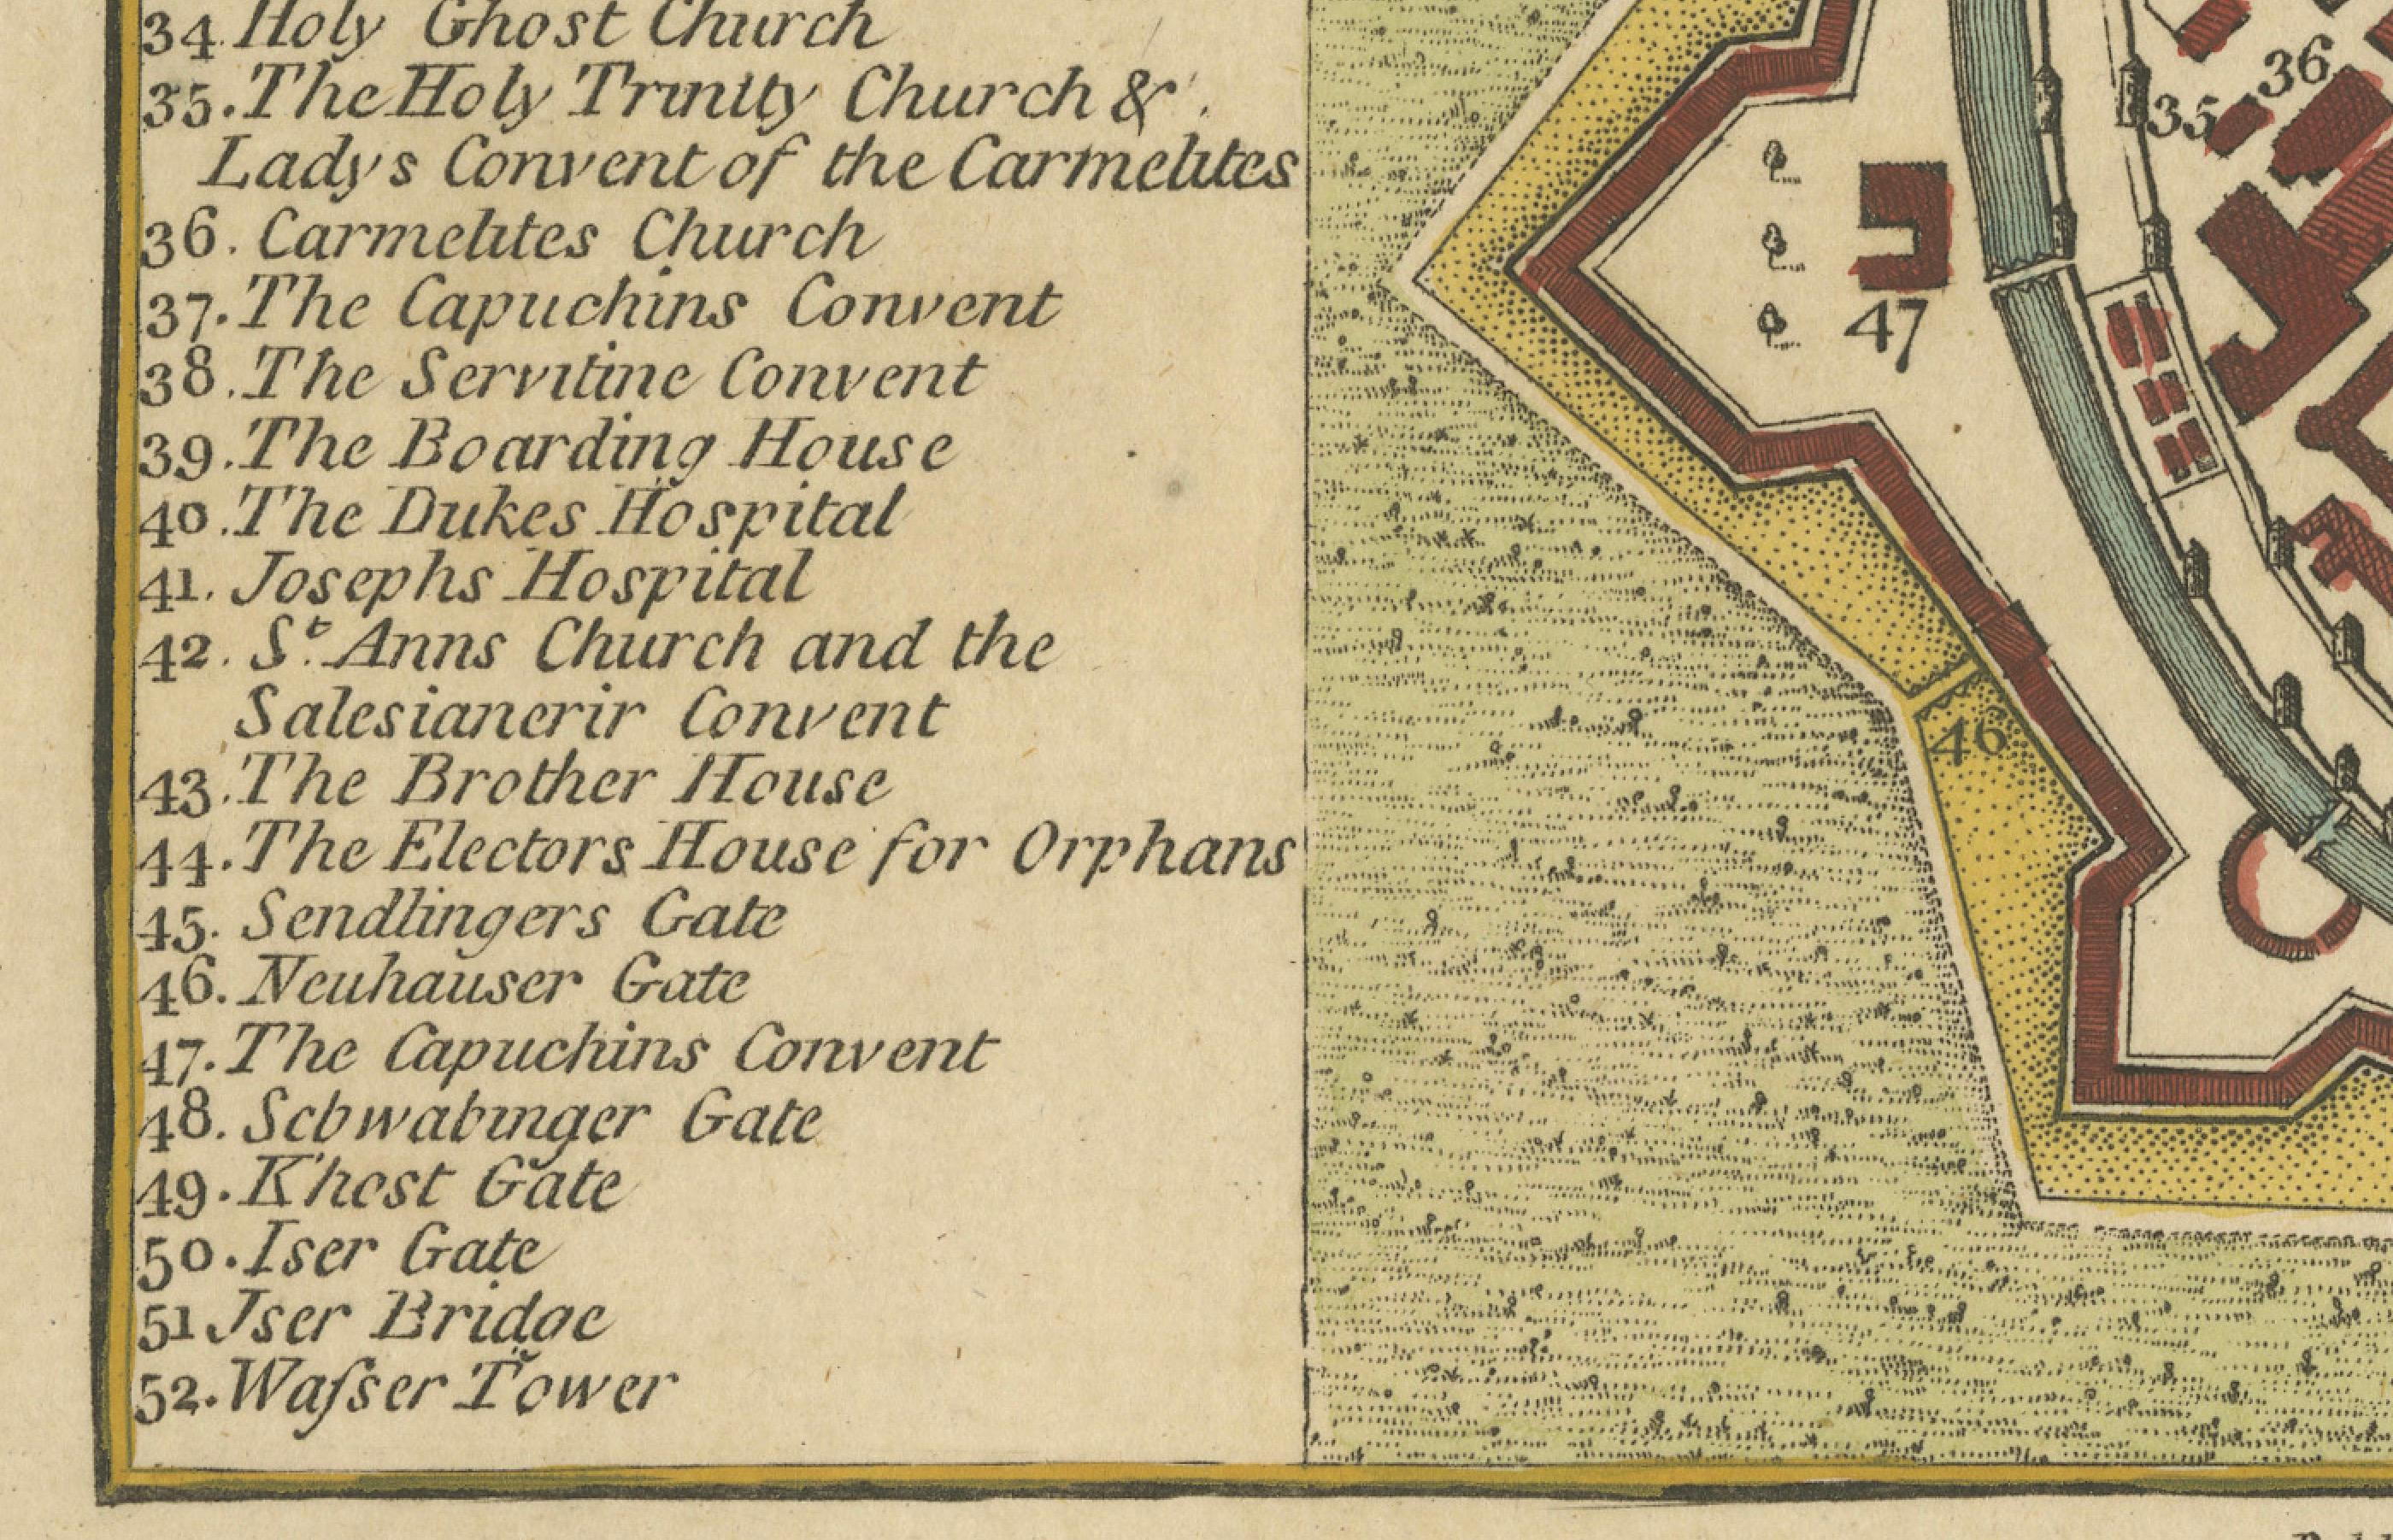 34. Holy Ghost Church
35. The Holy Trinity Church &
Ladys Convent of the Carmelites
36. Carmelites Church
37. The Capuchins Convent
38. The Servitine Convent
39. The Boarding House
40. The Dukes Hospital
41. Josephs Hospital
42. St. Anns Church and the
Salesianerir Convent
43. The Brother House
44. The Electors House for Orphans
45. Sendlingers Gate
46. Neuhauser Gate
47. The Capuchins Convent
48. Scbwabinger Gate
49. K'host Gate
50. Iser Gate
51 Jser Bridge
52. Waſser Tower
36
35
47
46